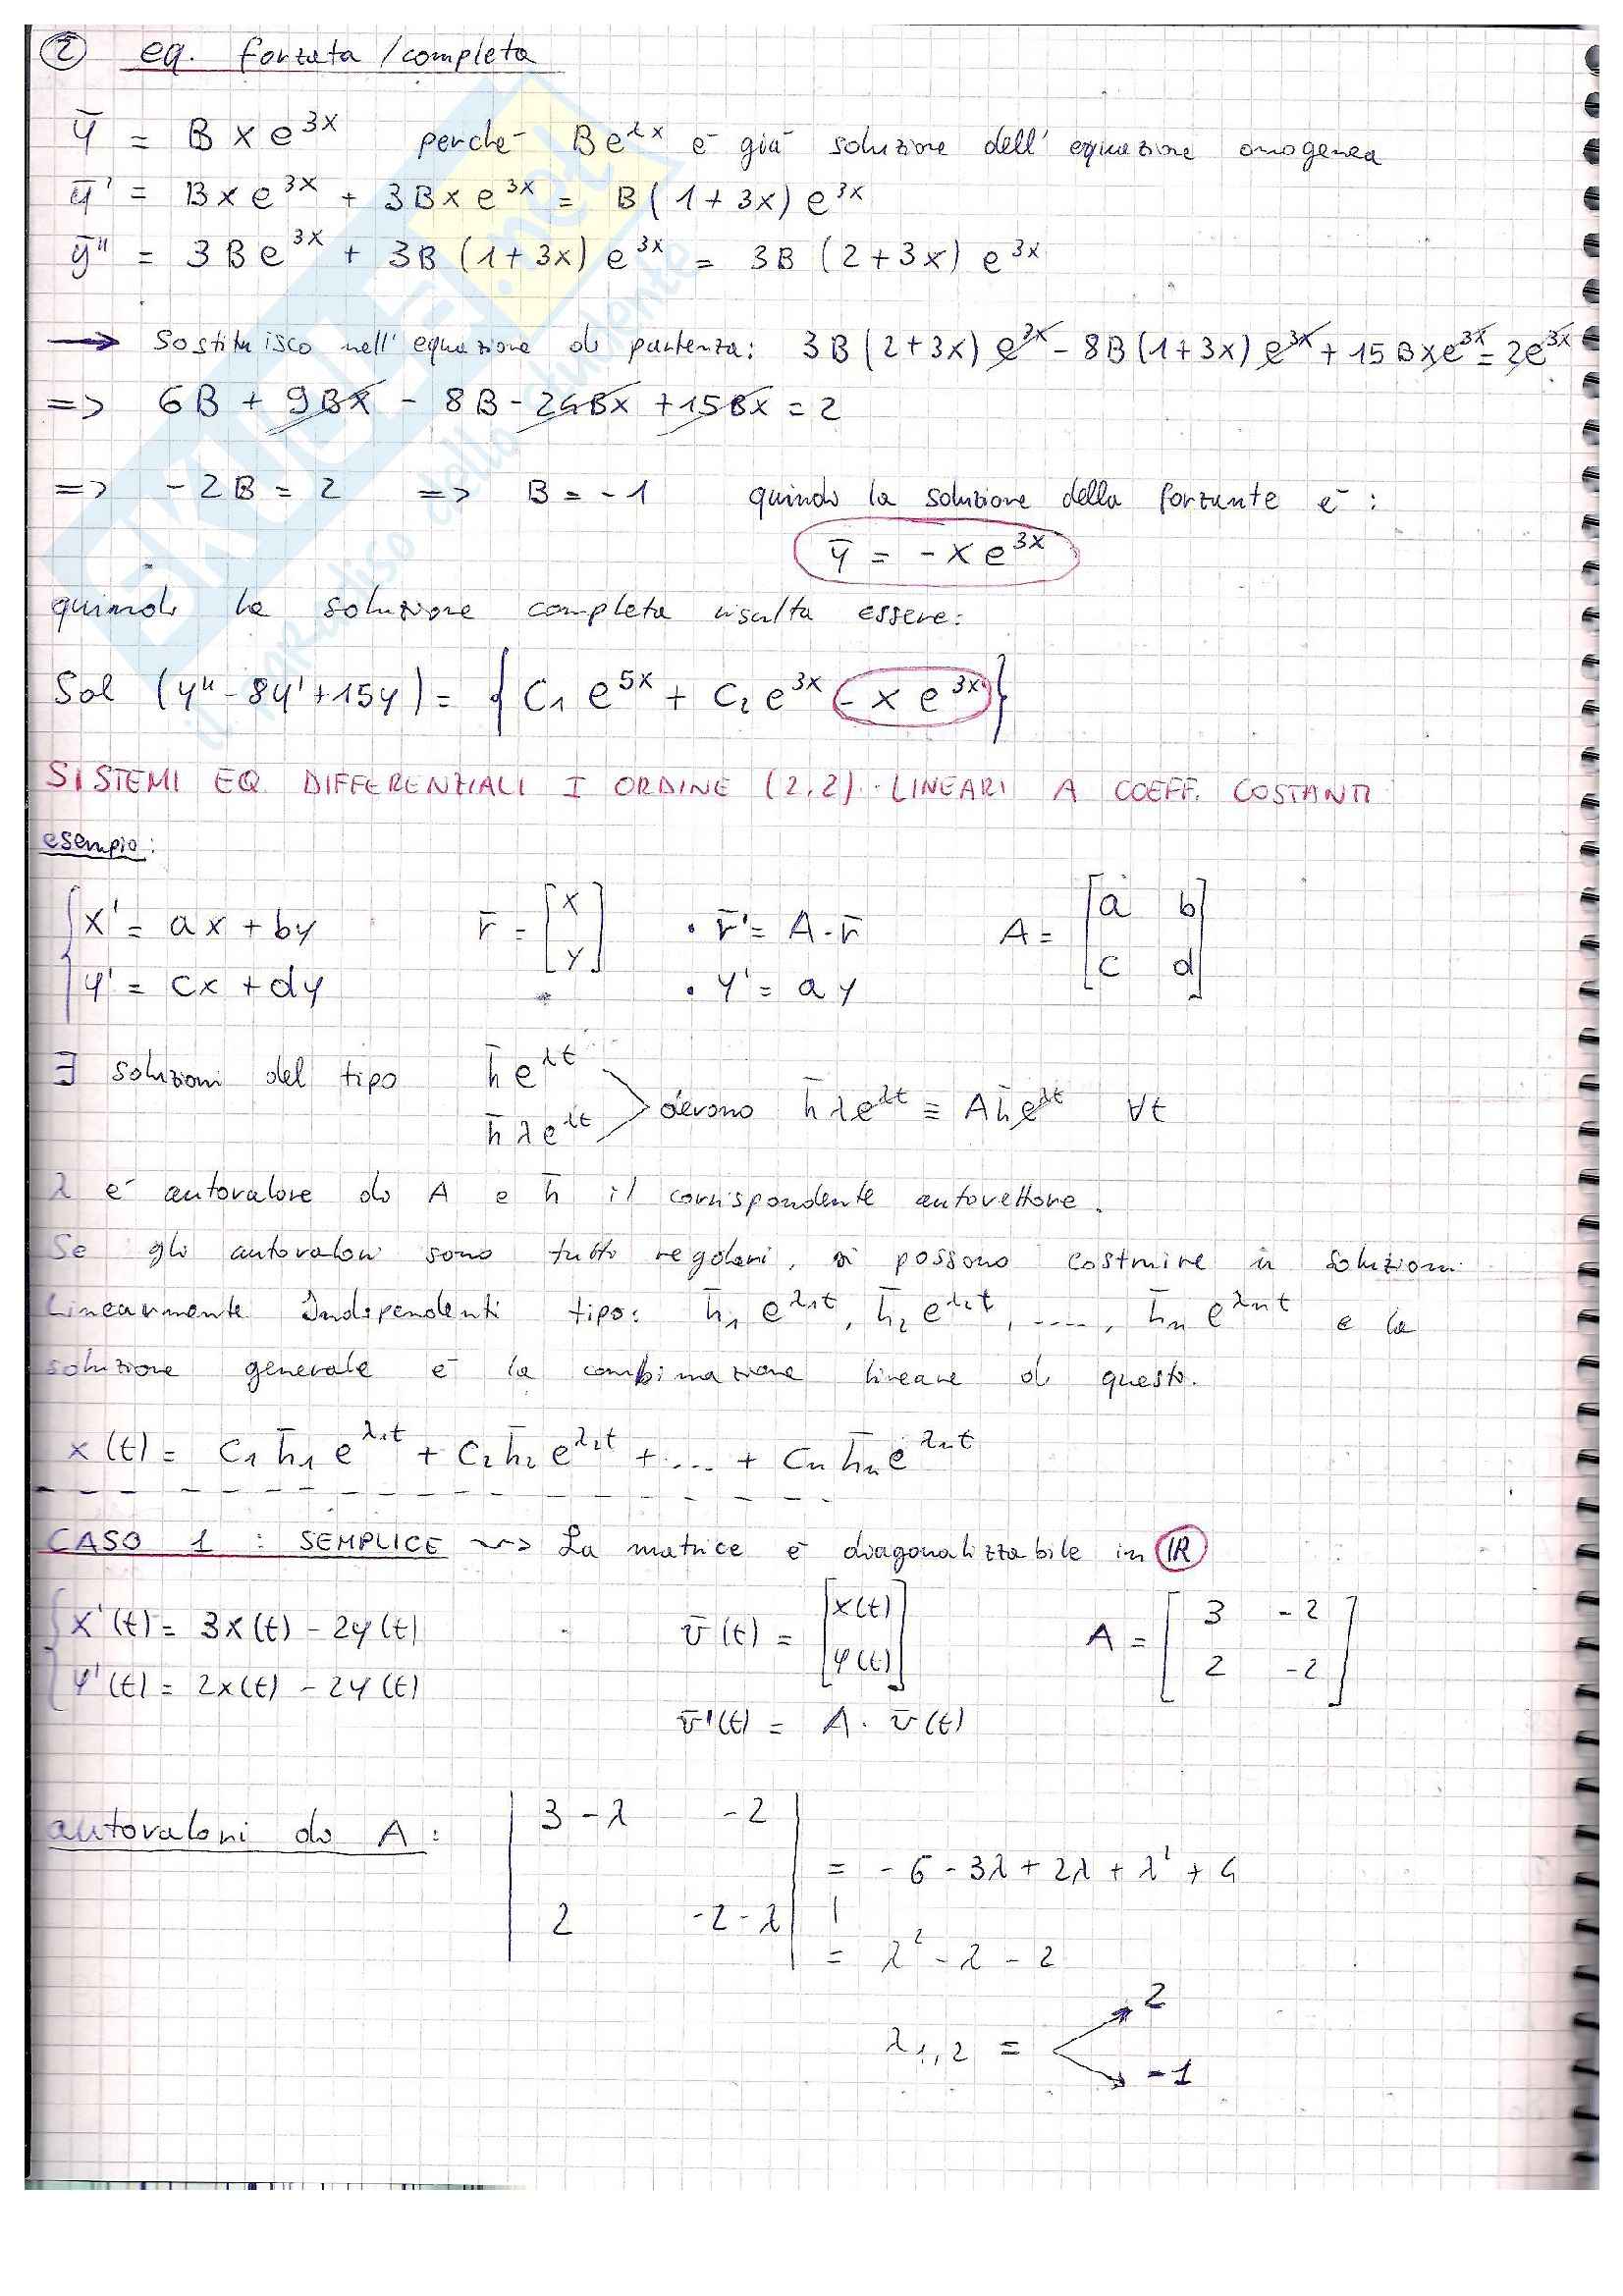 ② eq. forzata / completa
ȳ = B x e^3x perché B e^λx è già soluzione dell'equazione omogenea
ȳ' = B x e^3x + 3B x e^3x = B (1 + 3x) e^3x
ȳ'' = 3 B e^3x + 3B (1 + 3x) e^3x = 3B (2 + 3x) e^3x
→ Sostituisco nell'equazione di partenza: 3B (2 + 3x) e^3x - 8B (1 + 3x) e^3x + 15 B x e^3x = 2 e^3x
=> 6B + 9Bx - 8B - 24Bx + 15Bx = 2
=> -2B = 2 => B = -1 quindi la soluzione della forzante è:
ȳ = - x e^3x
quindi la soluzione completa risulta essere:
Sol (y'' - 8y' + 15y) = { C₁ e^5x + C₂ e^3x - x e^3x }
SISTEMI EQ. DIFFERENZIALI I ORDINE (2,2) LINEARI A COEFF. COSTANTI
esempio:
{ x' = ax + by
y' = cx + dy
r̄ = [ x y ]
• r̄' = A · r̄
• y' = ay
A = [ a b
c d ]
∃ soluzioni del tipo h̄ e^λt
h̄ λ e^λt
devono h̄ λ e^λt ≡ A h̄ e^λt ∀t
λ è autovalore di A e h̄ il corrispondente autovettore.
Se gli autovalori sono tutti regolari, si possono costruire n soluzioni
Linearmente Indipendenti tipo: h̄₁ e^λ₁t, h̄₂ e^λ₂t, ...., h̄n e^λnt e la
soluzione generale è la combinazione lineare di queste.
x(t) = C₁ h̄₁ e^λ₁t + C₂ h̄₂ e^λ₂t + .... + Cn h̄n e^λnt
CASO 1 : SEMPLICE ~> La matrice è diagonalizzabile in ℝ
{ x'(t) = 3x(t) - 2y(t)
y'(t) = 2x(t) - 2y(t)
v̄(t) = [ x(t) y(t) ]
A = [ 3 -2
2 -2 ]
v̄'(t) = A · v̄(t)
autovalori di A:
| 3-λ -2
2 -2-λ |
= -6 - 3λ + 2λ + λ² + 4
= λ² - λ - 2
λ₁,₂ =
2
-1
SKUOLA.net
il paradiso dello studente